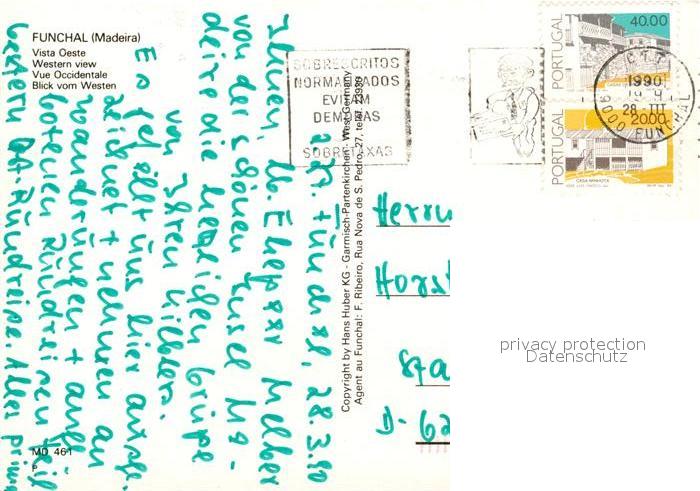 FUNCHAL (Madeira)
Vista Oeste
Western view
Vue Occidentale
Blick vom Westen
SOBRESCRITOS
NORMALIZADOS
EVITAM
DEMORAS
E
SOBRETAXAS
PORTUGAL
40.00
PORTUGAL
20.00
CASA MINHOTA
CTT
1990
28 - III
9000 FUNCHAL
z.Zt. Funchal, 28.3.90
Ihnen, lb. Ehepaar
von der schönen Insel Ma-
deira die herzlichen Grüße
von Ihren
Es gefällt uns hier
+ nehmen an
Wanderungen + auch
Rundreisen teil
gestern Rundreise. Alles prima
Copyright by Hans Huber KG - Garmisch-Partenkirchen - West Germany
Agent au Funchal: F. Ribeiro, Rua Nova de S. Pedro, 27, telef. 23930
MD 461
P
Herrn
Horst
D-62
privacy protection
Datenschutz